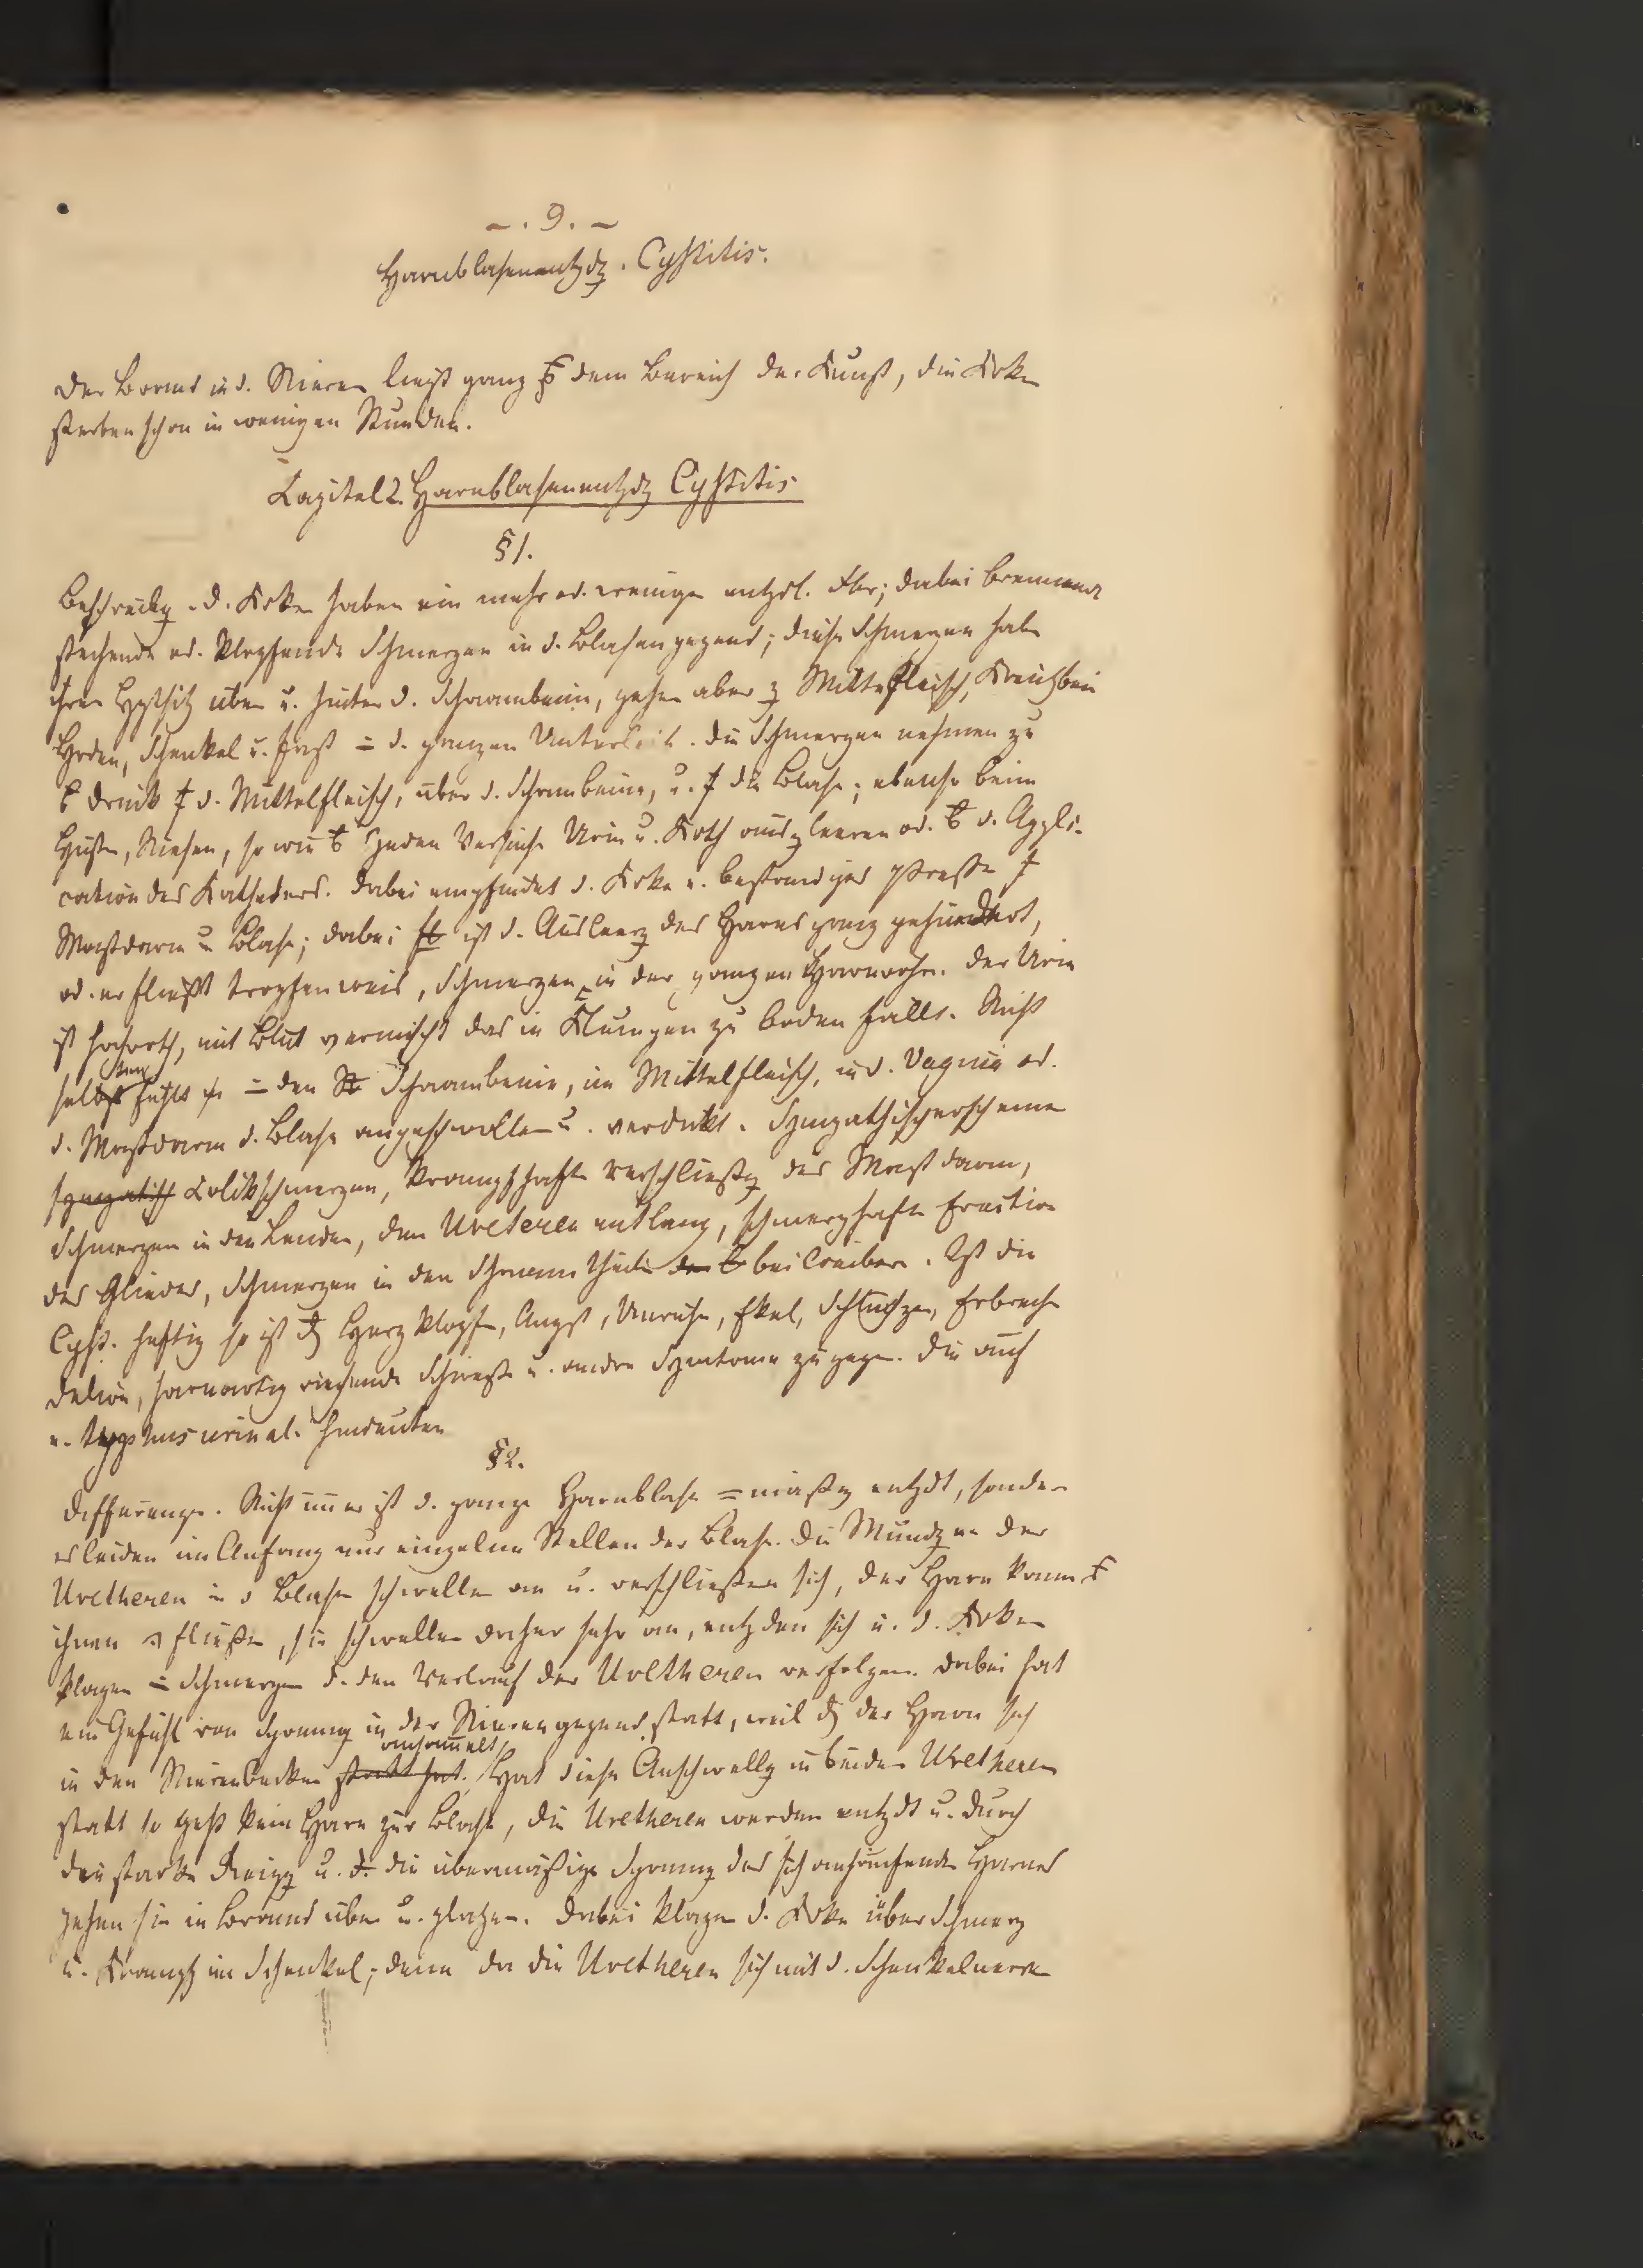 - . 9. -
Harnblasenentzdg. Cystitis.
Der Brand in d. Nieren liegt ganz dem Bereich der Kunst, die Krke
sterben schon in wenigen Stunden.
Capitel 2. Harnblasenentzdg Cystitis
§ 1.
Beschreibg. d. Krke haben ein mehr od. weniger entzdl. Fbr; dabei brennende
stechende od. klopfende Schmerzen in d. Blasengegend; diese Schmerzen haben
ihren Hptsitz über u. hinter d. Schaambeine, gehen aber z Mittelfleisch, Kreuzbein
Hoden, Schenkel u. fast = d. ganzen Unterleib. die Schmerzen nehmen zu
Druck d. Mittelfleisch, über d. Schambeine, u. die Blase; ebenso beim
Husten, Niesen, so wie jeden Versuche Urin u. Koth auszleeren od. d. Appli-
cation des Katheders. dabei empfindet d. Krke e. beständiges Pressen
Mastdarm u Blase; dabei ist d. Ausleerg des Harns ganz gehindert,
od. er fließt tropfenweis, Schmerzen in der ganzen Harnröhre. der Urin
ist hochroth, mit Blut vermischt das in Klumpen zu Boden fällt. Nicht
selten fühlt = den Schaambeine, im Mittelfleisch, in d. Vagina od.
d. Mastdarm d. Blase angeschwollen u. verdickt. Sympathischerscheinen
sympatisch Kolikschmerzen, krampfhafte Verschließg des Mastdarm,
Schmerzen in den Lenden, den Ureteren entlang, schmerzhafte Erection
des Gliedes, Schmerzen in den Schaamtheile bei Weibern. Ist die
Cyst. heftig so ist Herzklopfen, Angst, Unruhe, Ekel, Schluchzen, Erbrechen
Delirien, harnartig riechende Schweiße u. andre Symtome zugegen. die auch
e. typhus urinal. hindeuten
§ 2.
Differenzen. Nicht immer ist d. ganze Harnblase =mäßig entzdt, sondern
es leiden im Anfang nur einzelne Stellen der Blase. die Mündgen der
Uretheren in d Blase schwellen an u. verschließen sich, der Harn kann
ihnen fließen, sie schwellen daher sehr an, entzden sich u. d. Krken
klagen = Schmerzen d. den Verlauf der Uretheren verfolgen. dabei hat
ein Gefühl von Spannug in der Nierengegend statt, weil der Harn sich
in den Nierenbecken statt hat. ansammelt, Hat diese Anschwellg in beiden Uretheren
statt so geht kein Harn zur Blase, die Uretheren werden entzdt u. durch
den starken Reizg u. d. die übermäßige Spannug des sich anhäufenden Harnes
gehen sie in Brand über u. platzen. dabei klagen d. Krke über Schmerz
u. Krampf im Schenkel; denn da die Uretheren sich mit d. Schenkelnerven